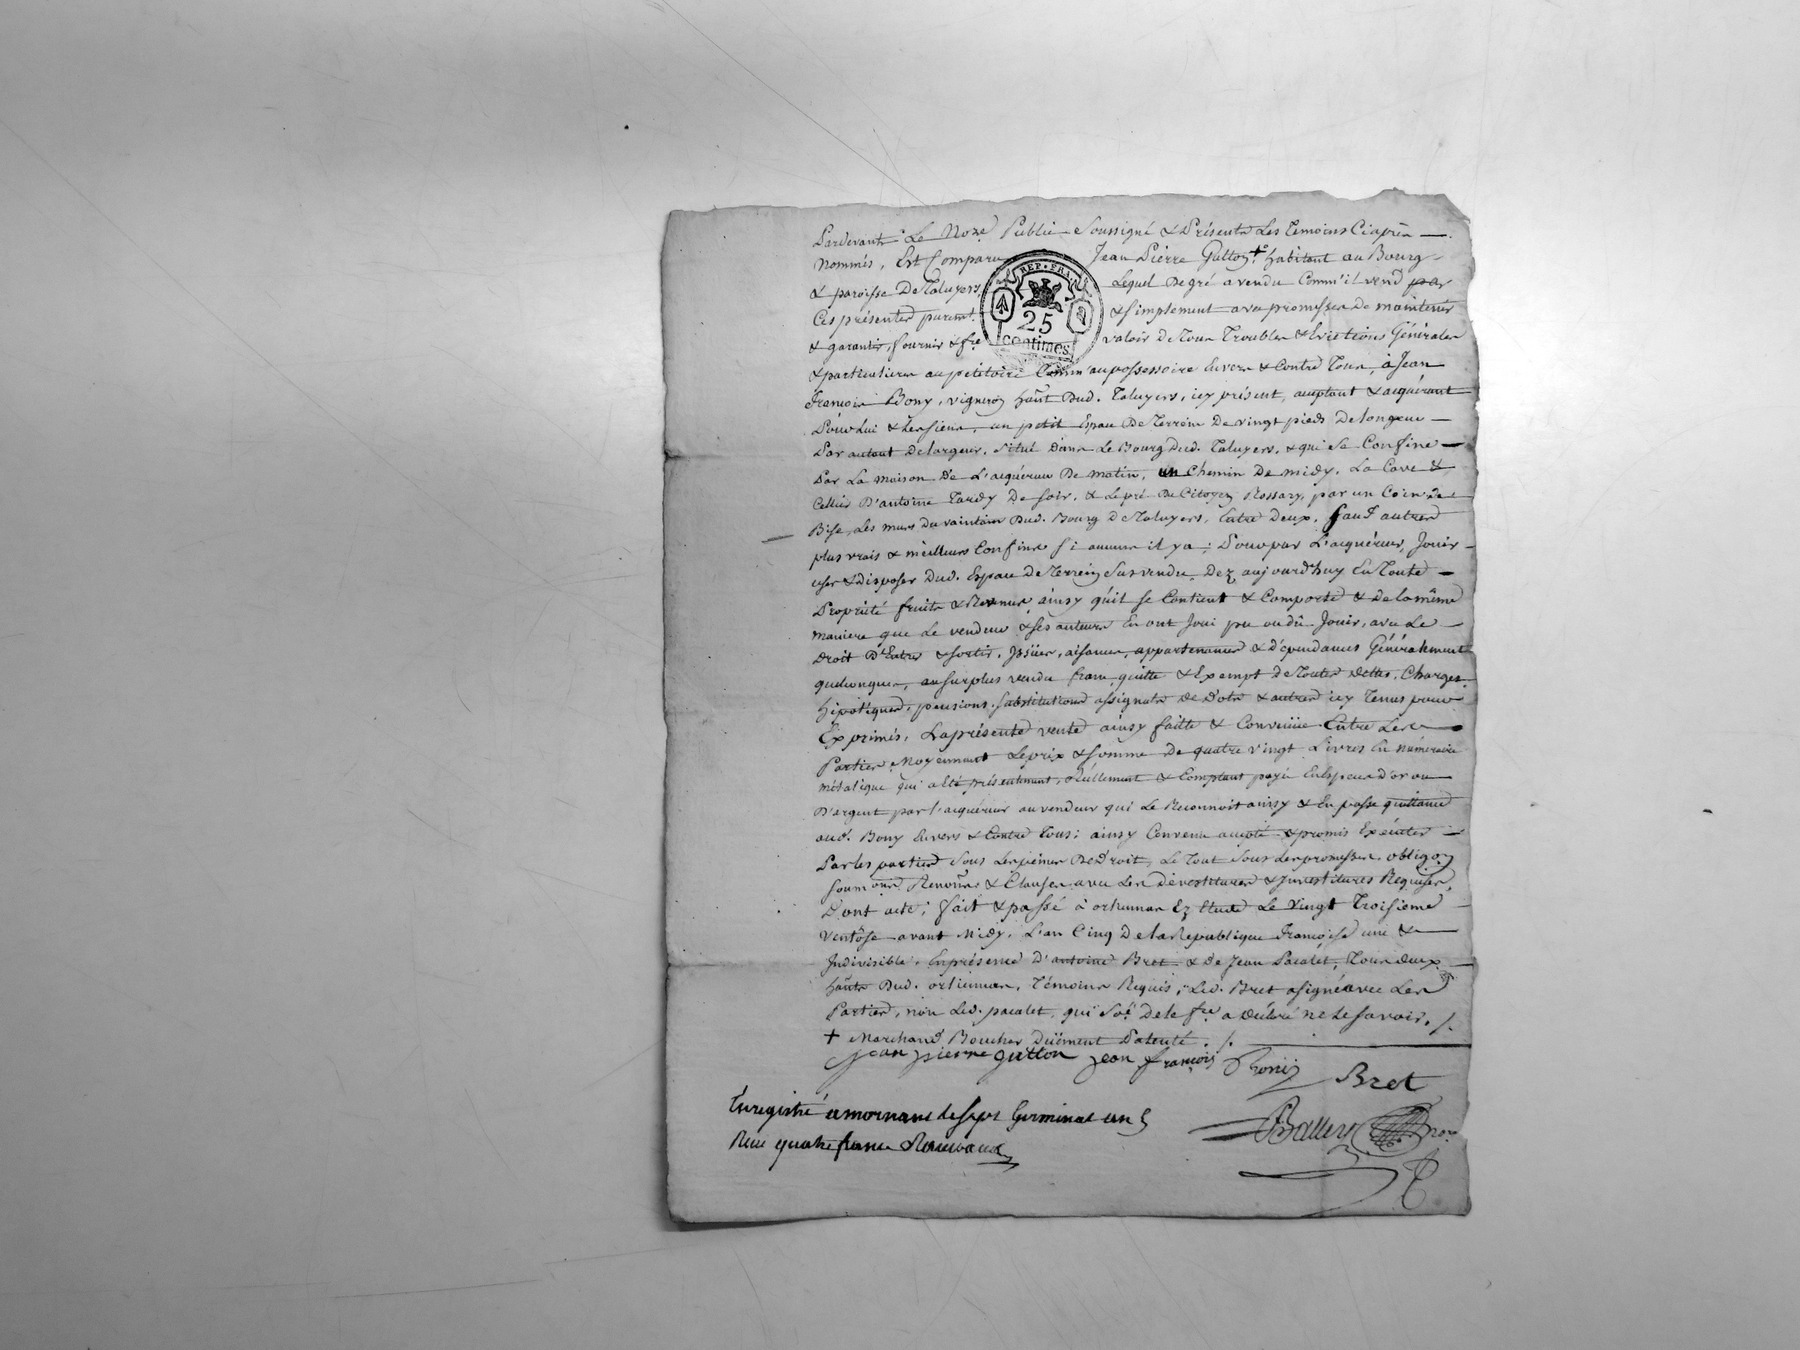 Pardevant Le Nore Public Soussigné & Présents Les temoins Ciaprès
Nommés, Est Comparu Jean Pierre Guttoy + habitant au Bourg
& paroisse De Taluyers, Lequel De gré a vendu Comm'il vend par
Ces présentes purемt & simplement avec promesse de maintenir
& garantir, fournir & fre valoir de tous Troubles & Evictions Générales
& particulieres au petitoire Comm'au possessoire Envers & Contre Tous, à Jean
François Bony, vigneroy hant Dud. Taluyers, icy présent, acceptant & acquérant
Pour lui & les siens, un petit Espace De Terrein De vingt pieds De longeur
Par autant de largeur, Situé dans Le Bourg Dud. Taluyers, & qui se Confine
Par La maison De L'acquéreur De matin, un Chemin De midy, La Cave &
Cellier D'antoine Tardy De soir, & Le pré Du Citoyen Rossary, par un Coin de
Bise, Les murs du vaintain Dud. Bourg De Taluyers, Entre deux, sauf autres
plus vrais & meilleurs Confins si aucuns il y a; Pour par L'acquéreur, Jouir
user & disposer Dud. Espace de Terrein Susvendu Dez aujourd'huy En Toute
Propriété fruits & Revenus, ainsy qu'il se Contient & Comporte & de la même
maniere que Le vendeur & ses auteurs En ont Joui pu ou dû Jouir, avec Le
Droit D'Entrer & sortir, Issües, aisances, appartenances & dépendances Généralement
quelconques, au surplus vendu franc quitte & Exempt de Toutes dettes, Charges,
hipotèques, pensions, substitutions assignats de Dots & autres icy Tenus pour
Exprimés, La présente vente ainsy faitte & Convenüe Entre Les
Parties Moyennant Le prix & somme De quatre vingt Livres En numéraire
métalique qui a été présentement, Réellement & Comptant payé En Especes d'or ou
D'argent par l'acquéreur au vendeur qui Le Reconnoit ainsy & En passe quittance
aud. Bony Envers & Contre tous; ainsy Convenu accepté & promis Exécuter
Par les parties sous Les peines De Droit, Le Tout Sous Les promesses, obligoy
soumons Renonns & Clauses avec Les dévestitures & Investitures Requises,
Dont acte; fait & passé à orliennas Ez Etude Le Vingt Troisieme
Ventôse avant Midy, L'an Cinq De la Republique Françoise une &
Indivisible, En présence D'antoine Bret & De Jean Pacalet, Tous deux
hants Dud. orliennas, Témoins Requis, Led. Bret a signé avec Les
Parties, non Led. pacalet, qui So.é De le fre a déclaré ne Le savoir. /.
+ Marchand Boucher Düement Patenté. /.
Jean pierre gutton Jean françois Bony
Bret
Enregistré a mornant le sept Germinal an 5
Reçu quatre francs